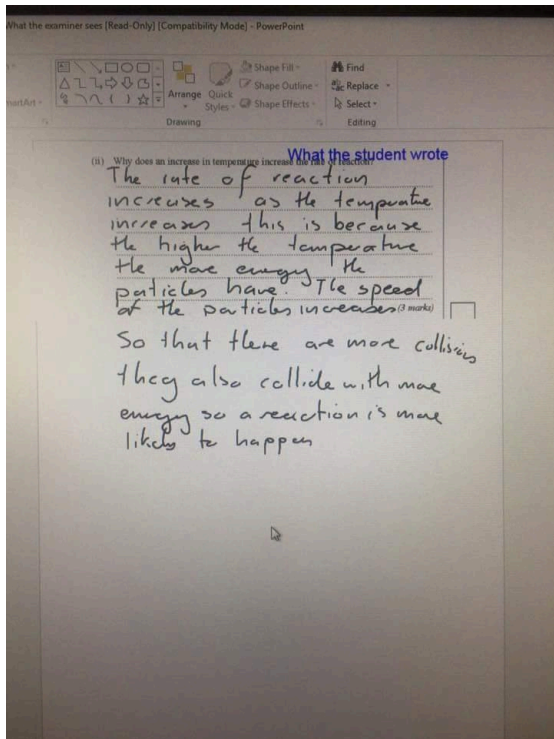 What the examiner sees [Read-Only] [Compatibility Mode] - PowerPoint
Shape Fill
Find
Shape Outline
Replace
SmartArt
Arrange
Quick Styles
Shape Effects
Select
Drawing
Editing
What the student wrote
(ii) Why does an increase in temperature increase the rate of reaction?
The rate of reaction
increases as the temperature
increases this is because
the higher the temperature
the more energy the
particles have. The speed
of the particles increases (3 marks)
So that there are more collisions
they also collide with more
energy so a reaction is more
likely to happen